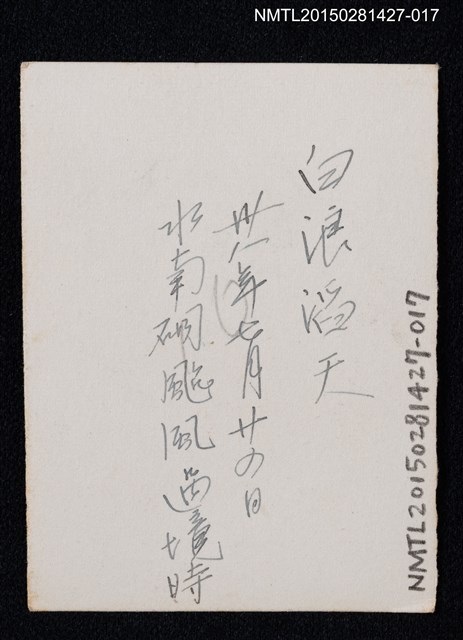 NMTL20150281427-017
白浪滔天
卅八年七月廿四日
水南硐颱風過境時
NMTL20150281427-017